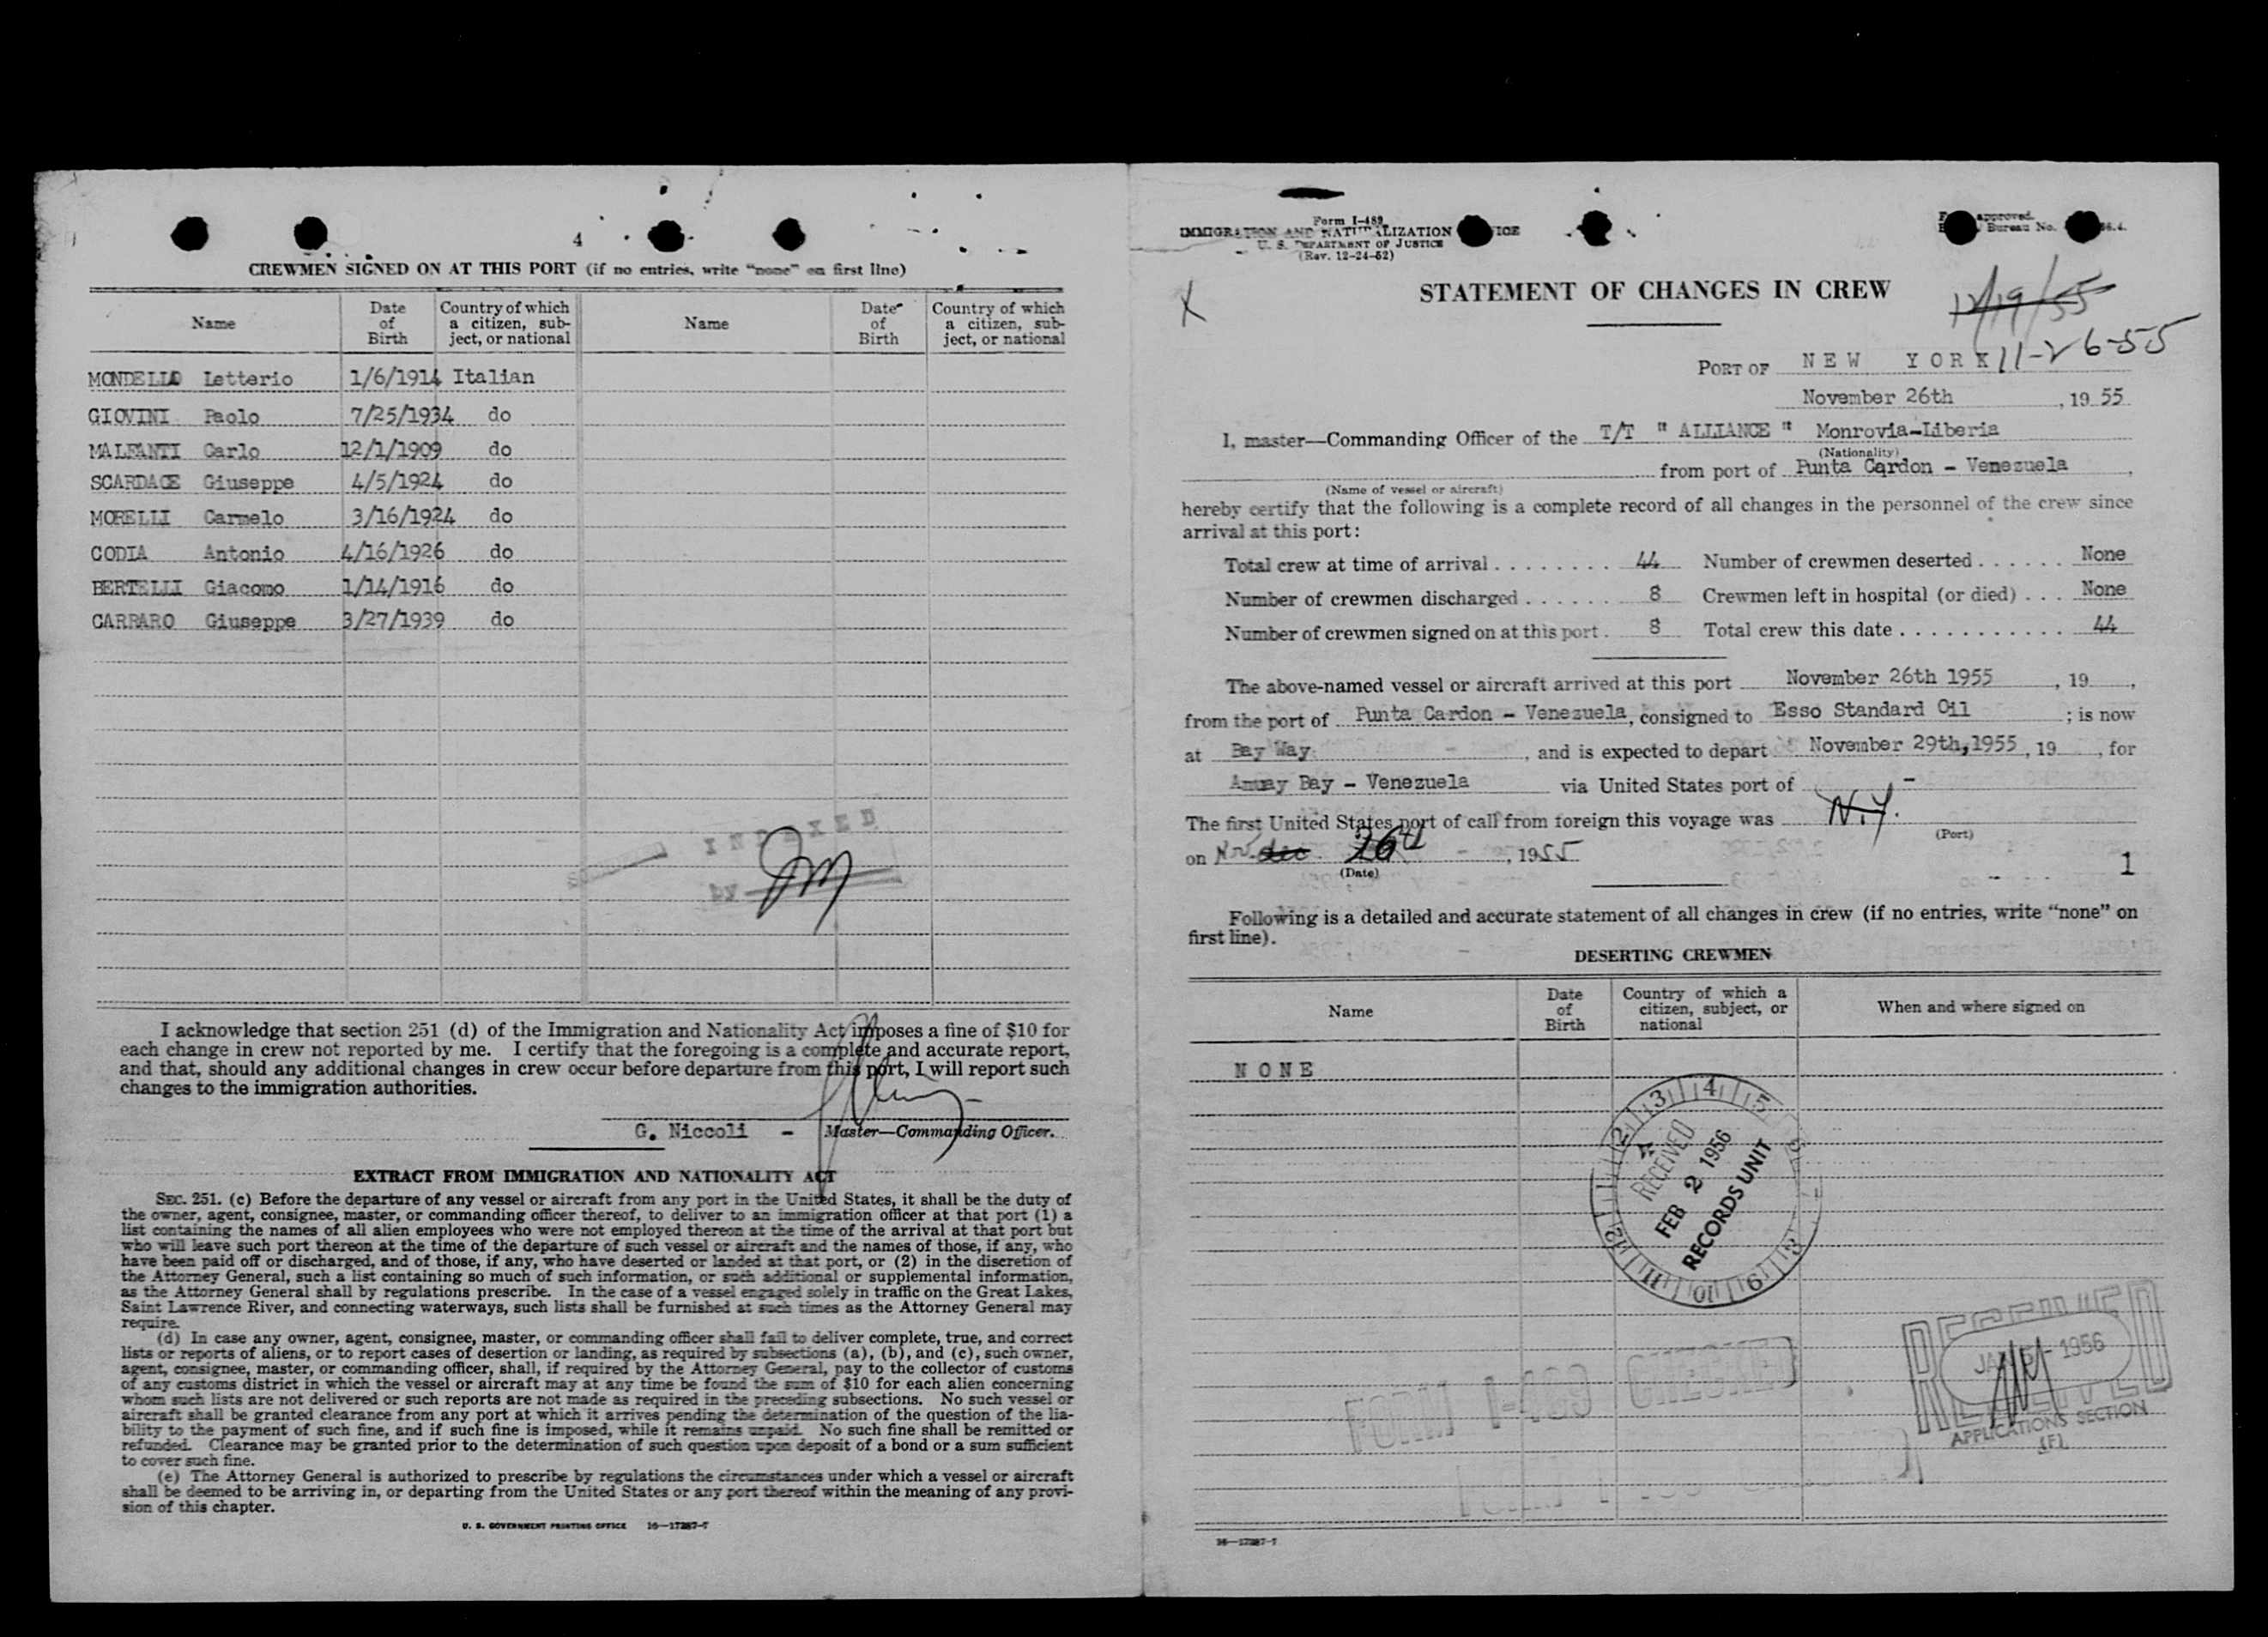 4
CREWMEN SIGNED ON AT THIS PORT (if no entries, write "none" on first line)
Name Date of Birth Country of which a citizen, subject, or national Name Date of Birth Country of which a citizen, subject, or national
MONDELLO Letterio 1/6/1914 Italian
GIOVINI Paolo 7/25/1934 do
MALFANTI Carlo 12/1/1909 do
SCARDACE Giuseppe 4/5/1924 do
MORELLI Carmelo 3/16/1924 do
CODIA Antonio 4/16/1926 do
BERTELLI Giacomo 1/14/1916 do
CARRARO Giuseppe 3/27/1939 do
I acknowledge that section 251 (d) of the Immigration and Nationality Act imposes a fine of $10 for
each change in crew not reported by me. I certify that the foregoing is a complete and accurate report,
and that, should any additional changes in crew occur before departure from this port, I will report such
changes to the immigration authorities.
G. Niccoli - Master—Commanding Officer.
EXTRACT FROM IMMIGRATION AND NATIONALITY ACT
SEC. 251. (c) Before the departure of any vessel or aircraft from any port in the United States, it shall be the duty of
the owner, agent, consignee, master, or commanding officer thereof, to deliver to an immigration officer at that port (1) a
list containing the names of all alien employees who were not employed thereon at the time of the arrival at that port but
who will leave such port thereon at the time of the departure of such vessel or aircraft and the names of those, if any, who
have been paid off or discharged, and of those, if any, who have deserted or landed at that port, or (2) in the discretion of
the Attorney General, such a list containing so much of such information, or such additional or supplemental information,
as the Attorney General shall by regulations prescribe. In the case of a vessel engaged solely in traffic on the Great Lakes,
Saint Lawrence River, and connecting waterways, such lists shall be furnished at such times as the Attorney General may
require.
(d) In case any owner, agent, consignee, master, or commanding officer shall fail to deliver complete, true, and correct
lists or reports of aliens, or to report cases of desertion or landing, as required by subsections (a), (b), and (c), such owner,
agent, consignee, master, or commanding officer, shall, if required by the Attorney General, pay to the collector of customs
of any customs district in which the vessel or aircraft may at any time be found the sum of $10 for each alien concerning
whom such lists are not delivered or such reports are not made as required in the preceding subsections. No such vessel or
aircraft shall be granted clearance from any port at which it arrives pending the determination of the question of the lia-
bility to the payment of such fine, and if such fine is imposed, while it remains unpaid. No such fine shall be remitted or
refunded. Clearance may be granted prior to the determination of such question upon deposit of a bond or a sum sufficient
to cover such fine.
(e) The Attorney General is authorized to prescribe by regulations the circumstances under which a vessel or aircraft
shall be deemed to be arriving in, or departing from the United States or any port thereof within the meaning of any provi-
sion of this chapter.
U. S. GOVERNMENT PRINTING OFFICE 16—17287-7
Form I-489
IMMIGRATION AND NATURALIZATION
U. S. DEPARTMENT OF JUSTICE
(Rev. 12-24-52)
approved.
Bureau No.
X
STATEMENT OF CHANGES IN CREW
12/19/55
PORT OF NEW YORK 11-26-55
November 26th, 19 55
I, master—Commanding Officer of the T/T " ALLIANCE " Monrovia-Liberia
(Nationality)
from port of Punta Cardon - Venezuela,
(Name of vessel or aircraft)
hereby certify that the following is a complete record of all changes in the personnel of the crew since
arrival at this port:
Total crew at time of arrival . . . . . . . . 44 Number of crewmen deserted . . . . . . None
Number of crewmen discharged . . . . . . 8 Crewmen left in hospital (or died) . . . None
Number of crewmen signed on at this port . 8 Total crew this date . . . . . . . . . . . . 44
The above-named vessel or aircraft arrived at this port November 26th 1955, 19 ,
from the port of Punta Cardon - Venezuela, consigned to Esso Standard Oil ; is now
at Bay Way , and is expected to depart November 29th,1955, 19 , for
Amuay Bay - Venezuela via United States port of -
The first United States port of call from foreign this voyage was N.Y.
(Port)
on Nov. dec. 26th, 1955
(Date)
1
Following is a detailed and accurate statement of all changes in crew (if no entries, write "none" on
first line).
DESERTING CREWMEN
Name Date of Birth Country of which a citizen, subject, or national When and where signed on
NONE
RECEIVED
FEB 2 1956
RECORDS UNIT
FORM I-489 CHECKED
RECEIVED
1956
APPLICATIONS SECTION
16—17287-7